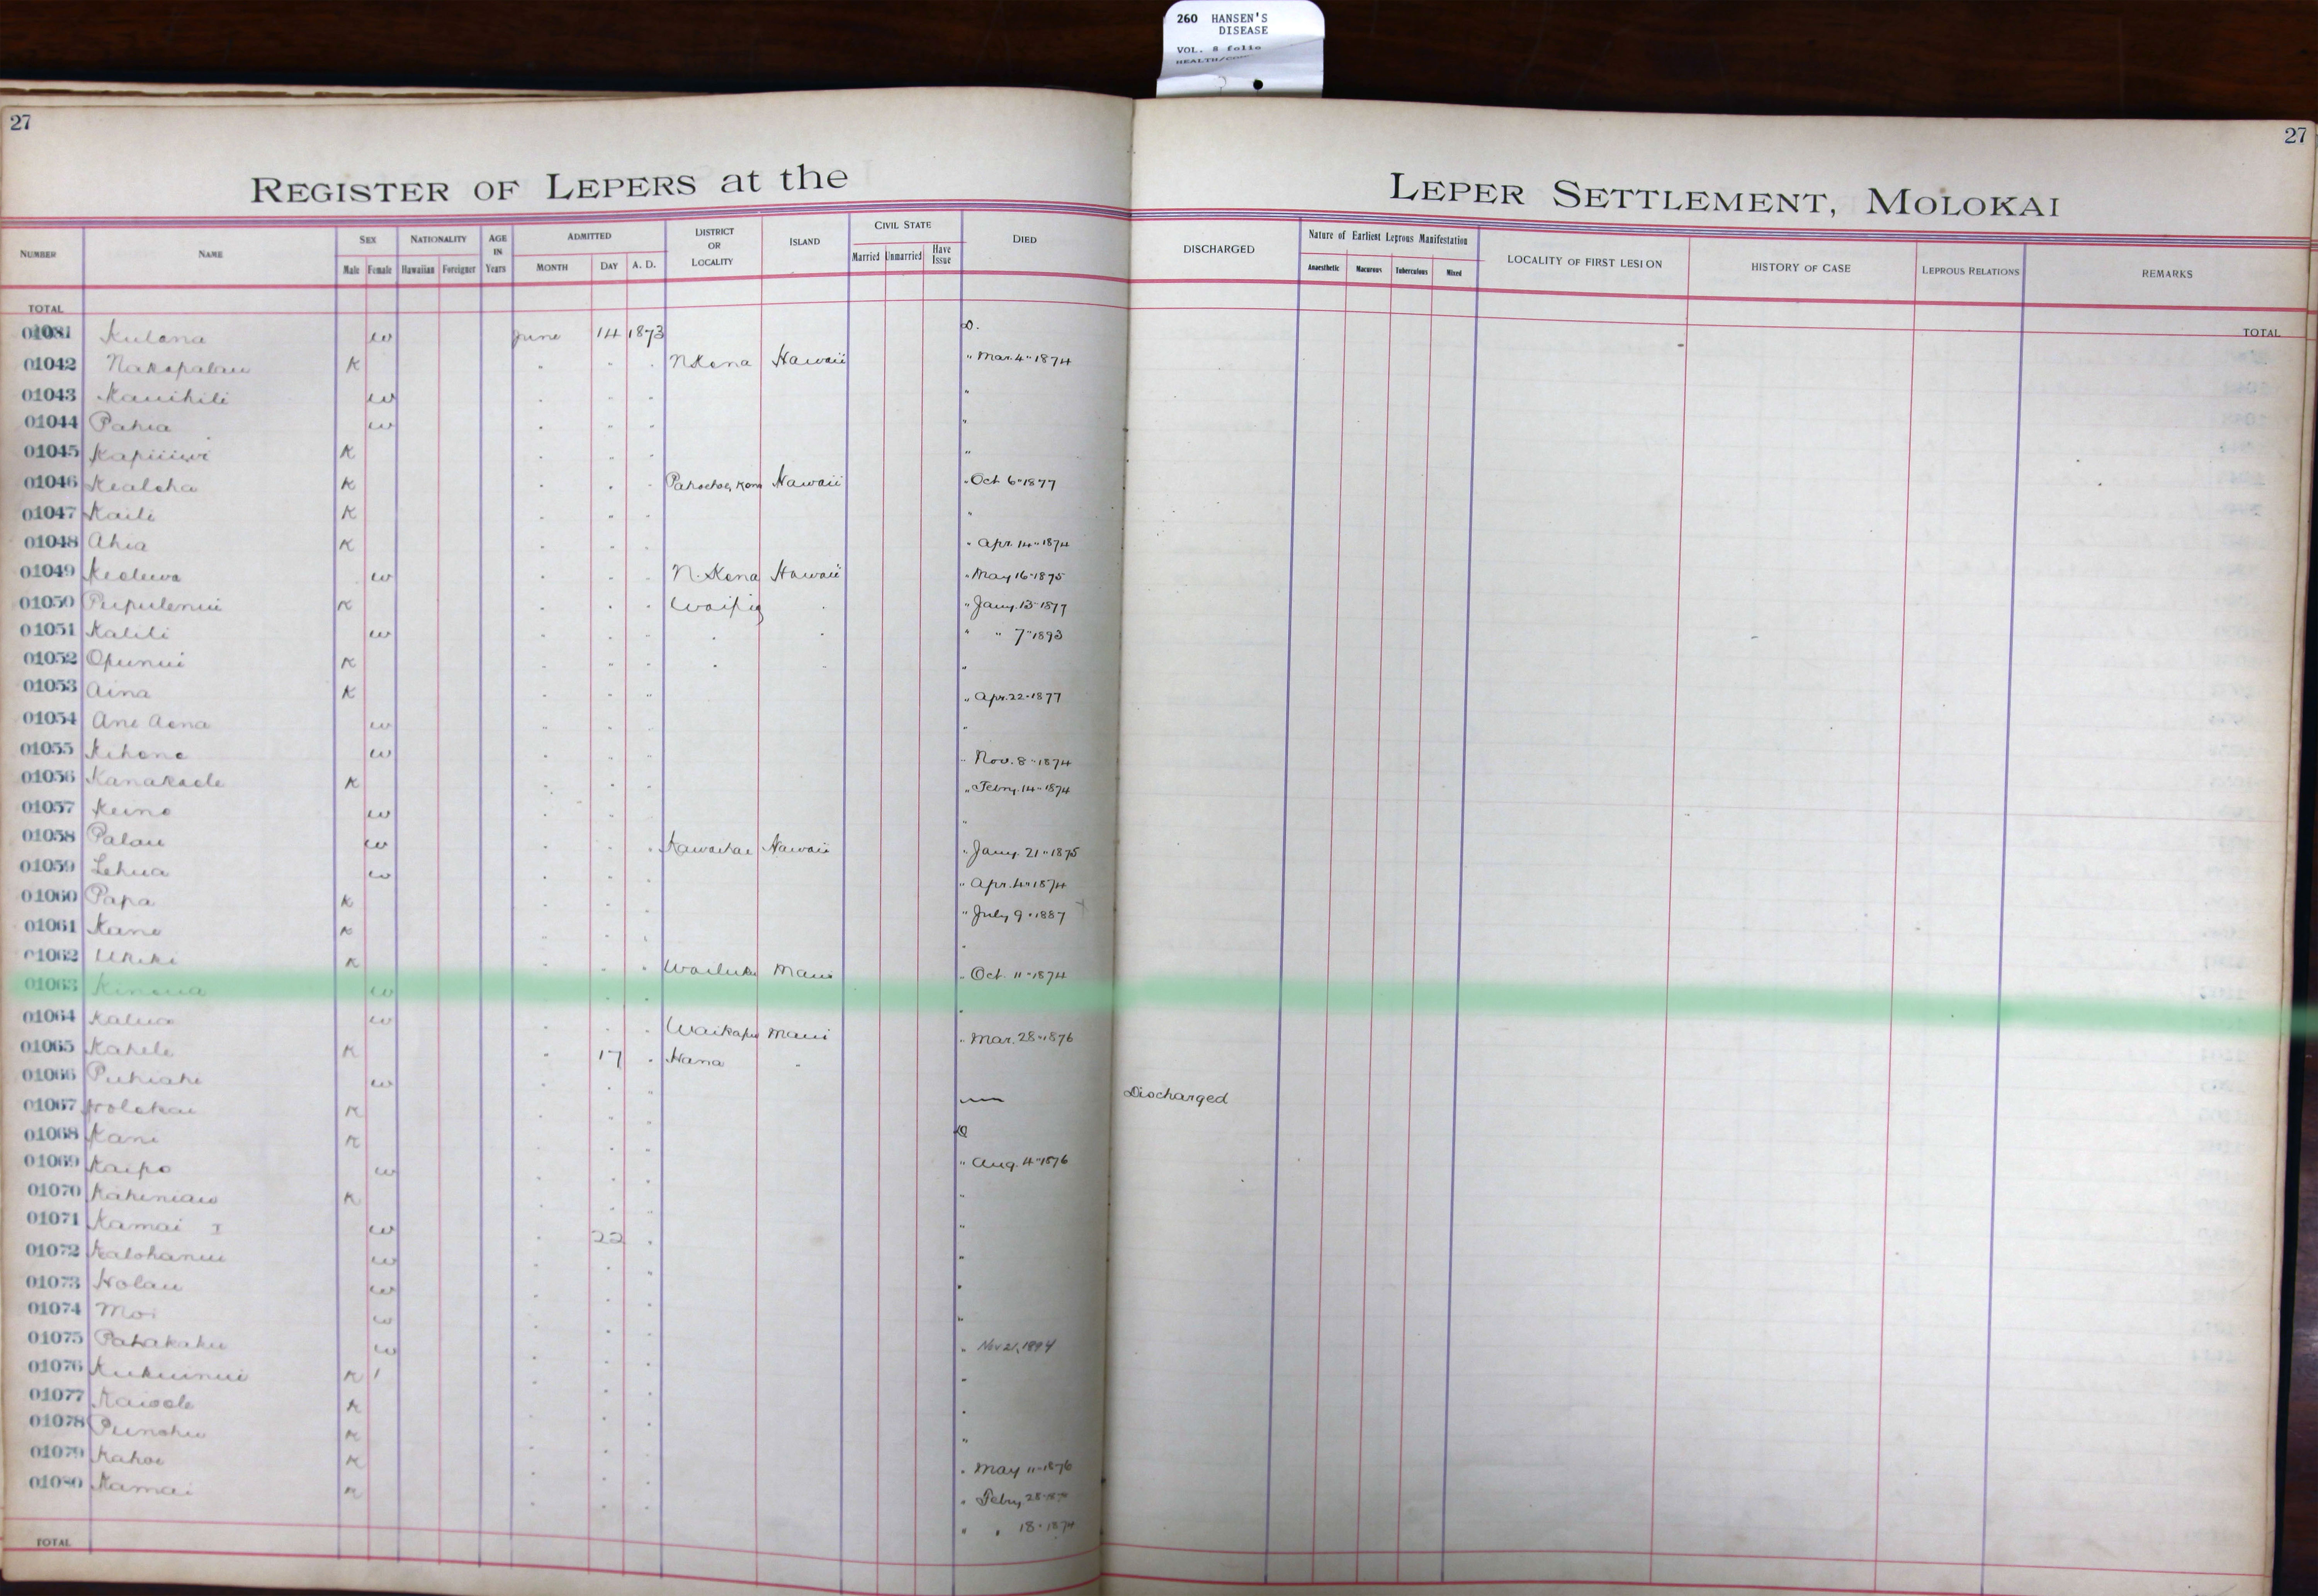 260 HANSEN'S
DISEASE
VOL. 8 folio
27
27
REGISTER OF LEPERS at the LEPER SETTLEMENT, MOLOKAI
NUMBER NAME SEX Male Female NATIONALITY Hawaiian Foreigner AGE IN Years ADMITTED MONTH DAY A. D. DISTRICT OR LOCALITY ISLAND CIVIL STATE Married Unmarried Have Issue DIED DISCHARGED Nature of Earliest Leprous Manifestation Anaesthetic Macurous Tuberculous Mixed LOCALITY OF FIRST LESION HISTORY OF CASE LEPROUS RELATIONS REMARKS
TOTAL TOTAL
Kulana w June 14 1873 D.
01042 Nakopalau K " " " N Kona Hawaii " Mar. 4" 1874
01043 Kauihili w " " " "
01044 Pahia w " " " "
01045 K " " " "
01046 Kealoha K " " " Hawaii " Oct 6" 1877
01047 Kaili K " " " "
01048 Ahia K " " " " Apr. 14" 1874
01049 w " " " N. Kona Hawaii " May 16" 1875
01050 Pupulenui K " " " Waipio " " Jany. 13" 1877
01051 Kalili w " " " " " " " 7" 1893
01052 Opunui K " " " " " "
01053 Aina K " " " " Apr. 22" 1877
01054 Ane Aona w " " " "
01055 Kihone w " " " " Nov. 8" 1874
01056 Kanakaole K " " " " Febry. 14" 1874
01057 Keino w " " " "
01058 Palau w " " " Kawaihae Hawaii " Jany. 21" 1875
01059 Lehua w " " " " Apr. 4" 1874
01060 Papa K " " " " July 9" 1887
01061 Kane K " " " "
01062 Ukeke K " " " Wailuku Maui " Oct. 11" 1874
01063 Kinoua w " " " "
01064 Kalua w " " " Waikapu Maui " Mar. 28" 1876
01065 Kahele K " 17 " Hana "
01066 Puhiahi w " " " — Discharged
01067 Holokai K " " " D
01068 Kani K " " " " Aug. 4" 1876
01069 Kaipo w " " " "
01070 Kaheniau K " " " "
01071 Kamai I w " 22 " "
01072 Kalohanui w " " " "
01073 Holau w " " " "
01074 Moi w " " " " Nov 21, 1894
01075 Pahakaku w " " " "
01076 Kukuinui K " " " "
01077 Kaioole K " " " "
01078 Punohu K " " " " May 11" 1876
01079 Kahoe K " " " " Febry 28"
01080 Kamai K " " " " " 18" 1874
TOTAL